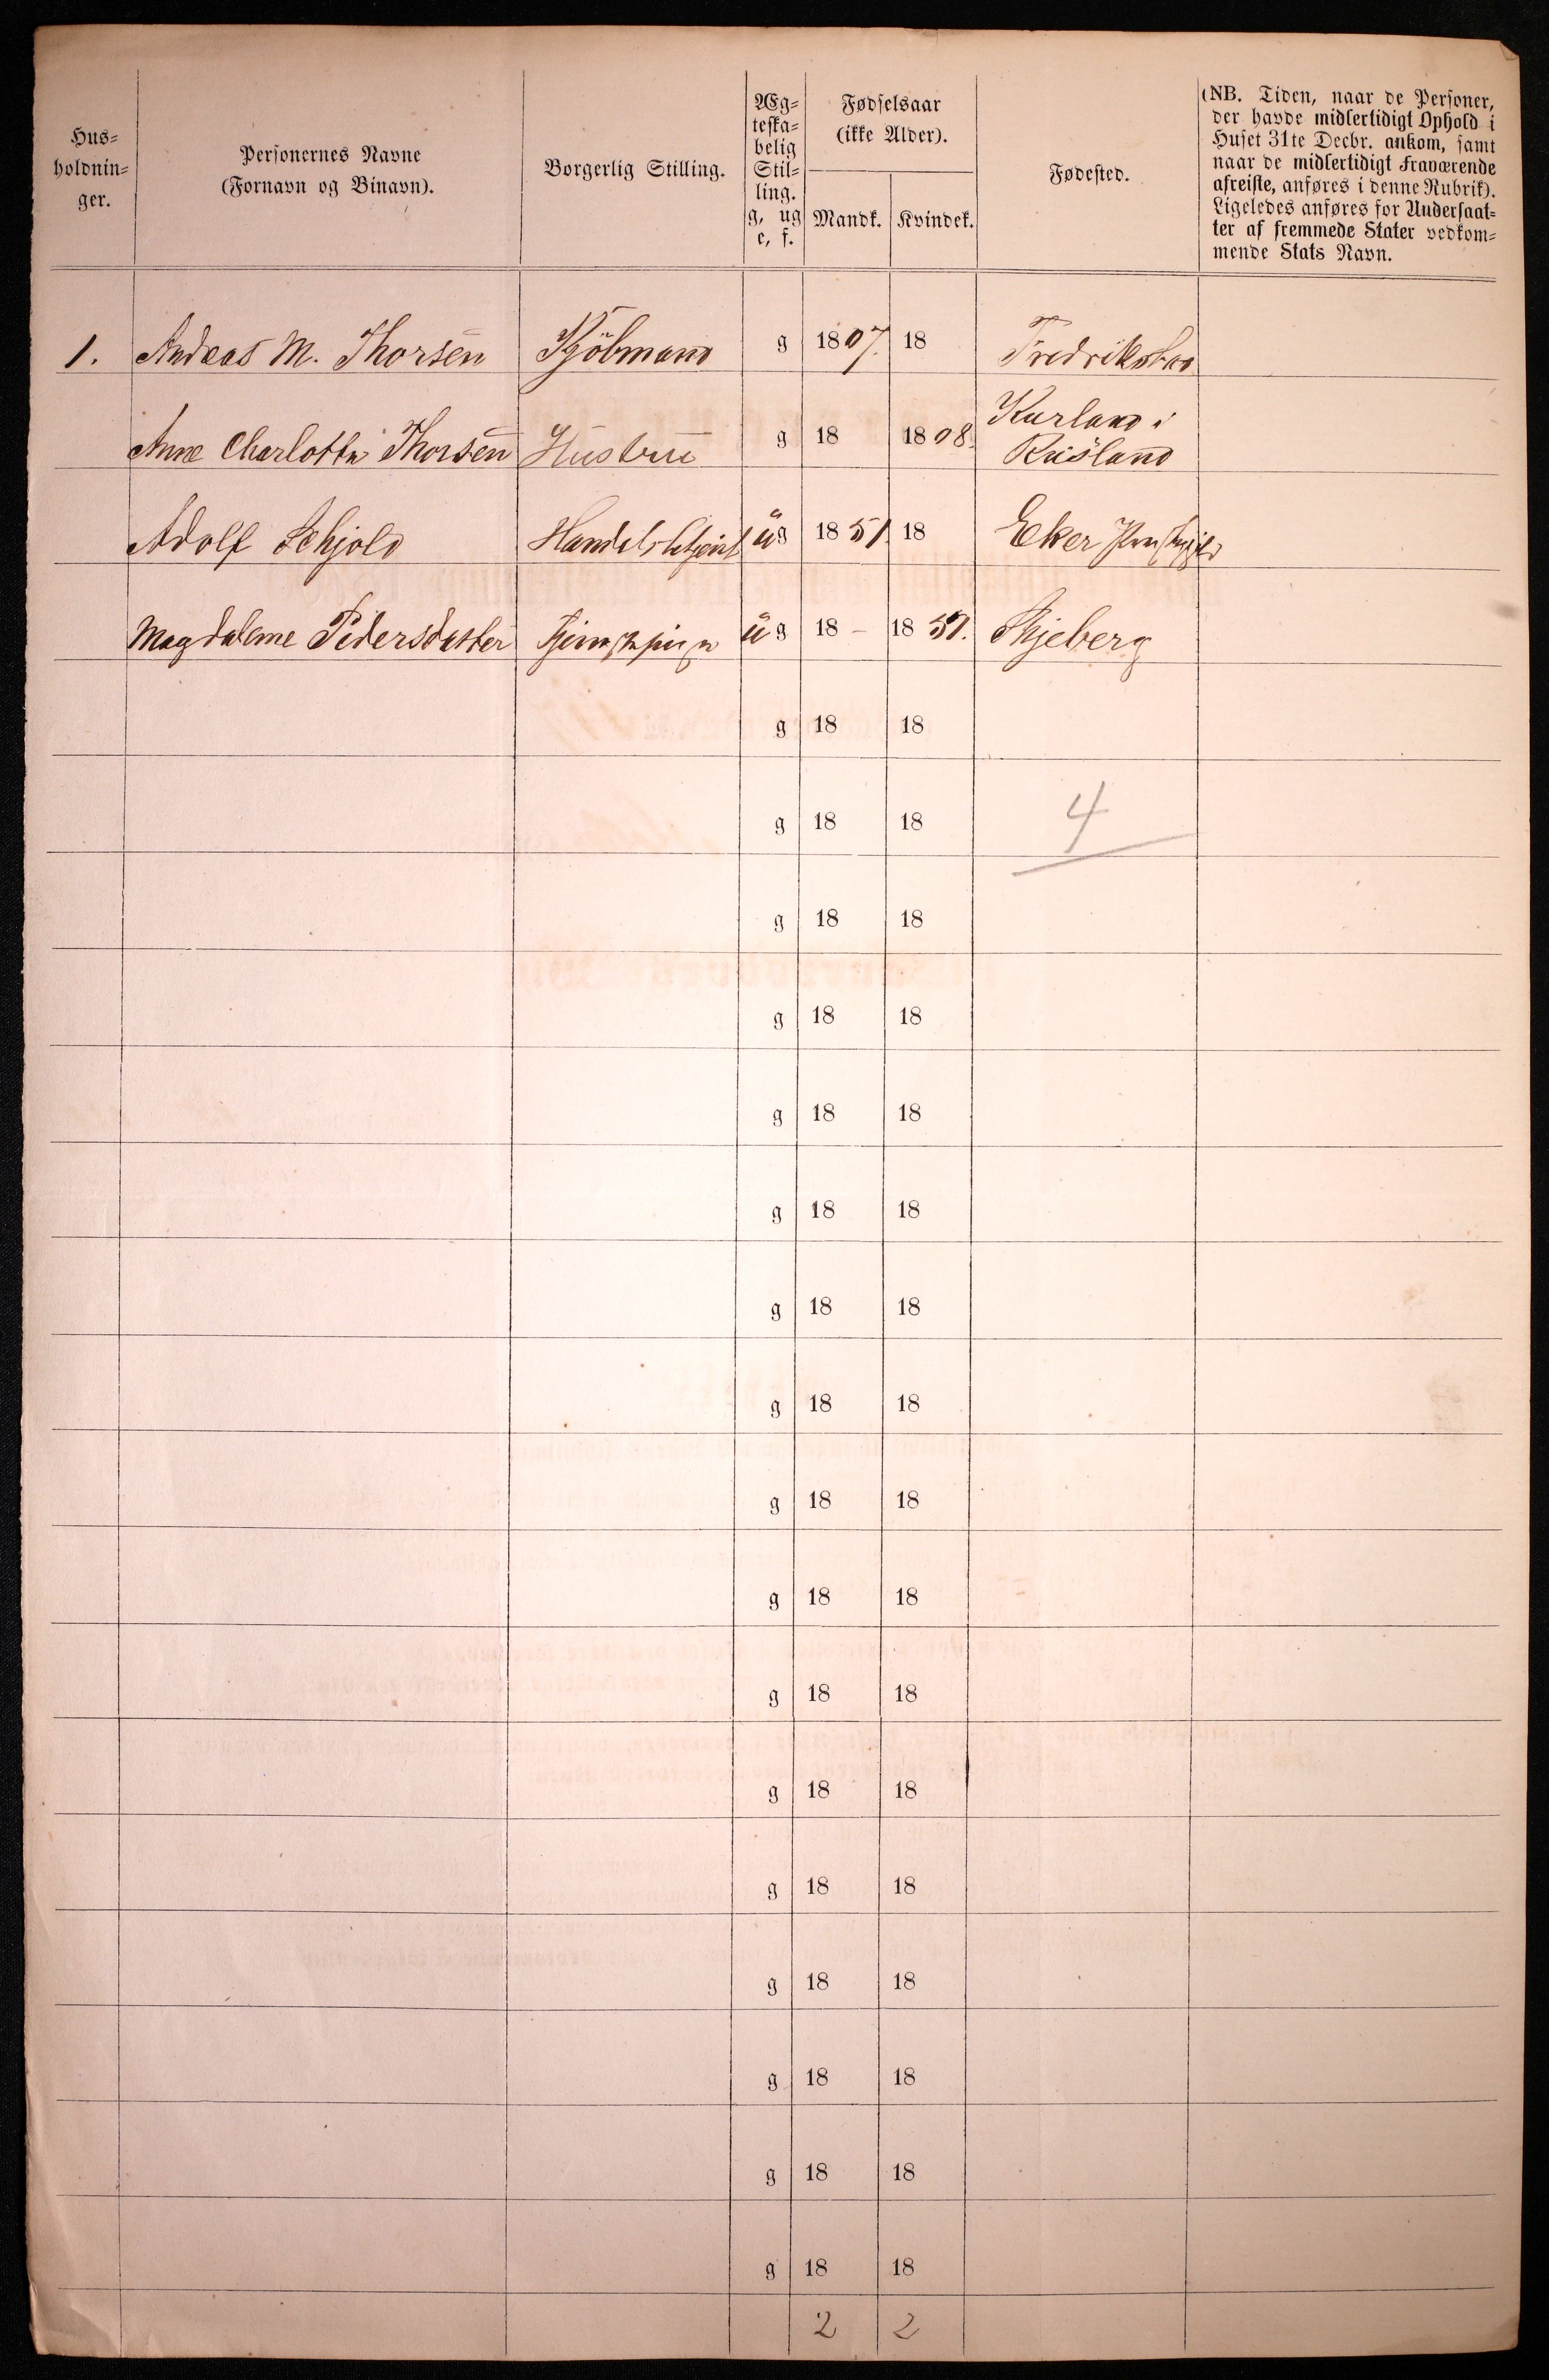 Hus-
holdnin-
ger.
Personernes Navne
(Fornavn og Binavn).
Borgerlig Stilling.
Æg-
teska-
belig
Stil-
ling.
g, ug
e, f.
Fødselsaar
(ikke Alder).
Mandk. Kvindek.
Fødested.
(NB. Tiden, naar de Personer,
der havde midlertidigt Ophold i
Huset 31te Decbr. ankom, samt
naar de midlertidigt Fraværende
afreiste, anføres i denne Rubrik).
Ligeledes anføres for Undersaat-
ter af fremmede Stater vedkom-
mende Stats Navn.
1. Andreas M. Thorsen Kjöbmand g 1807. 18 Fredrikstad
Anne Charlotte Thorsen Hustru g 18 1808. Kurland i
Rusland
Adolf Schjold ug 1851. 18 Eker
Magdalene Pedersdatter ug 18 – 18 Skjeberg
g 18 18
g 18 18 4
g 18 18
g 18 18
g 18 18
g 18 18
g 18 18
g 18 18
g 18 18
g 18 18
g 18 18
g 18 18
g 18 18
g 18 18
g 18 18
g 18 18
g 18 18
2 2